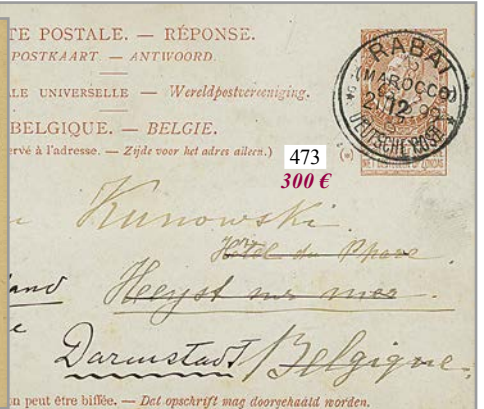 TE POSTALE. — RÉPONSE.
POSTKAART. — ANTWOORD.
LE UNIVERSELLE — Wereldpostvereeniging.
BELGIQUE. — BELGIE.
ervé à l'adresse. — Zijde voor het adres alleen.)
RABAT
(MAROCCO)
21 12 99
DEUTSCHE POST
473
300 €
Kunowski.
Hôtel du Phare
and Heyst sur mer.
e
Darmstadt/Belgique.
n peut être biffée. — Dat opschrift mag doorgehaald worden.